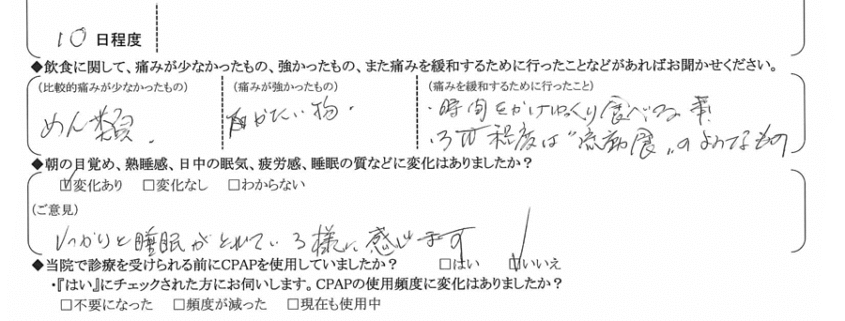 10 日程度
◆飲食に関して、痛みが少なかったもの、強かったもの、また痛みを緩和するために行ったことなどがあればお聞かせください。
(比較的痛みが少なかったもの) (痛みが強かったもの) (痛みを緩和するために行ったこと)
めん類. かたい物. ・時間をかけゆっくり食べる事!
・3日程度は"流動食"のようなもの
◆朝の目覚め、熟睡感、日中の眠気、疲労感、睡眠の質などに変化はありましたか?
☑変化あり □変化なし □わからない
(ご意見)
しっかりと睡眠がとれている様に感じます
◆当院で診療を受けられる前にCPAPを使用していましたか? □はい ☑いいえ
・『はい』にチェックされた方にお伺いします。CPAPの使用頻度に変化はありましたか?
□不要になった □頻度が減った □現在も使用中